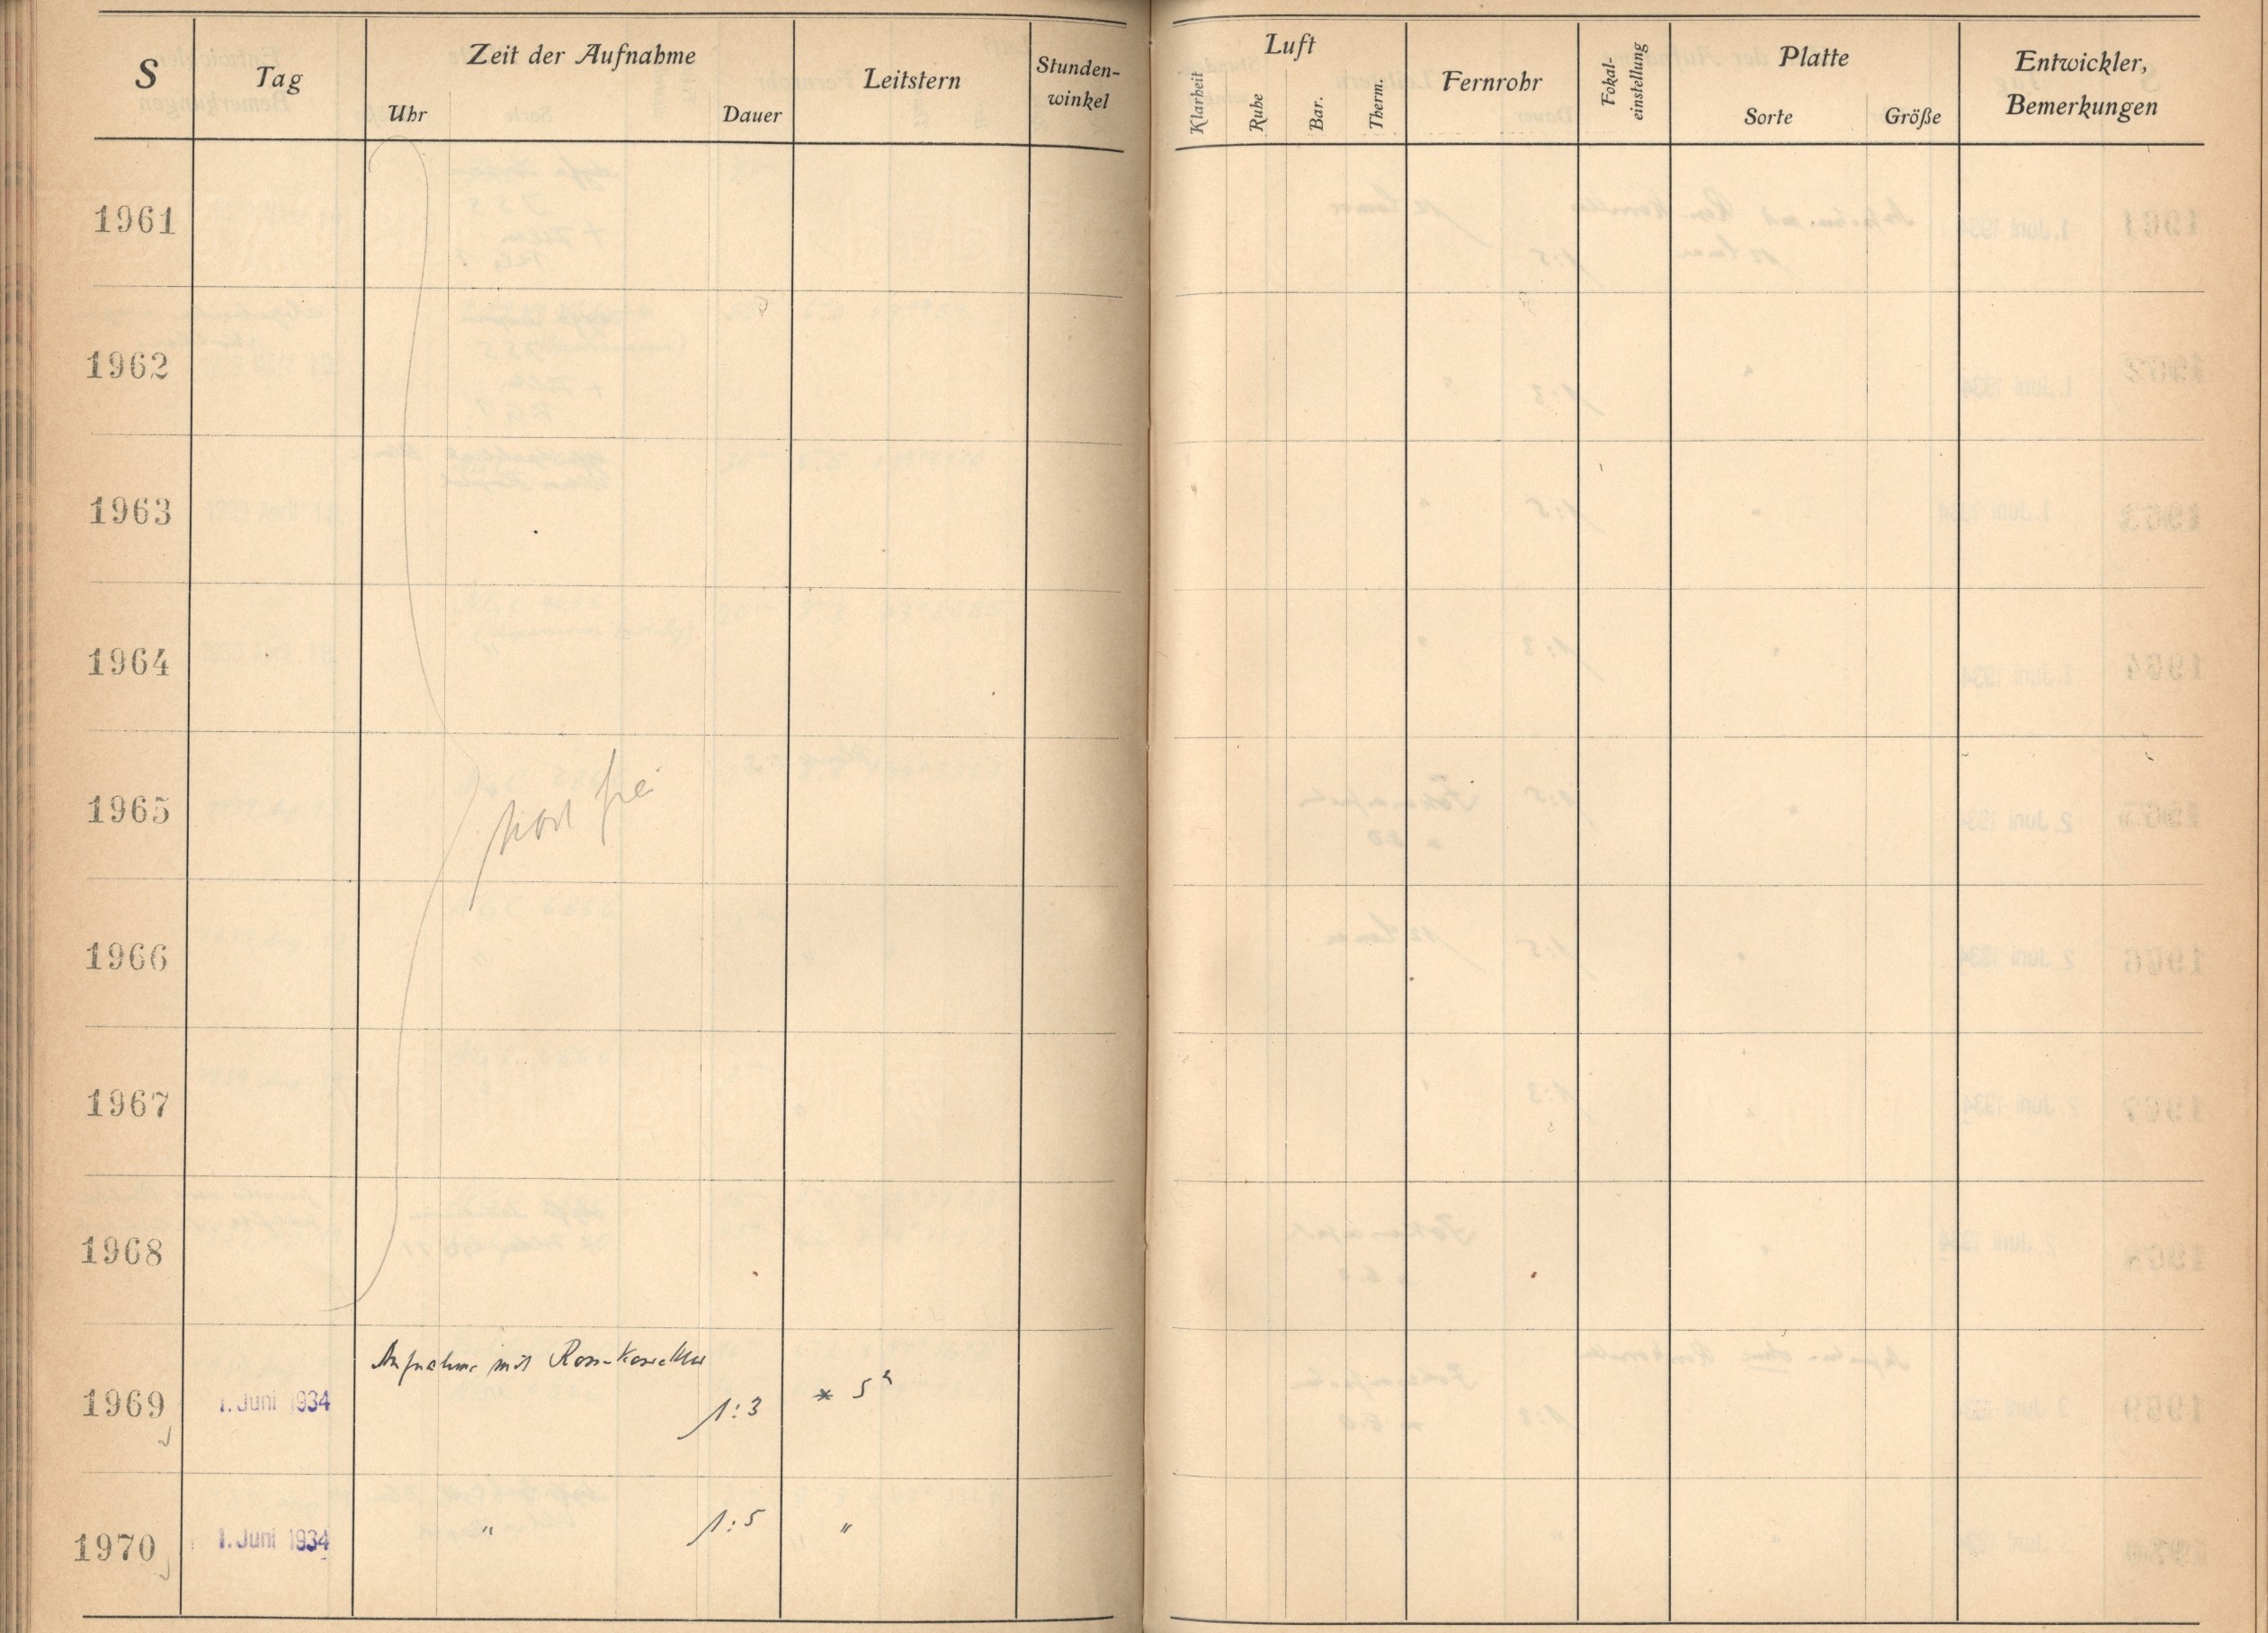 S Tag Zeit der Aufnahme Leitstern Stunden-
winkel
Uhr Dauer
Luft Fernrohr Fokal-
einstellung Platte Entwickler,
Bemerkungen
Klarheit Ruhe Bar. Therm. Sorte Größe
1961
1962
1963
1964
1965 frei
1966
1967
1968
Aufnahme mit Ross-Korrektur
1969 1. Juni 1934 1:3 * 5
1970 1. Juni 1934 " 1:5 "